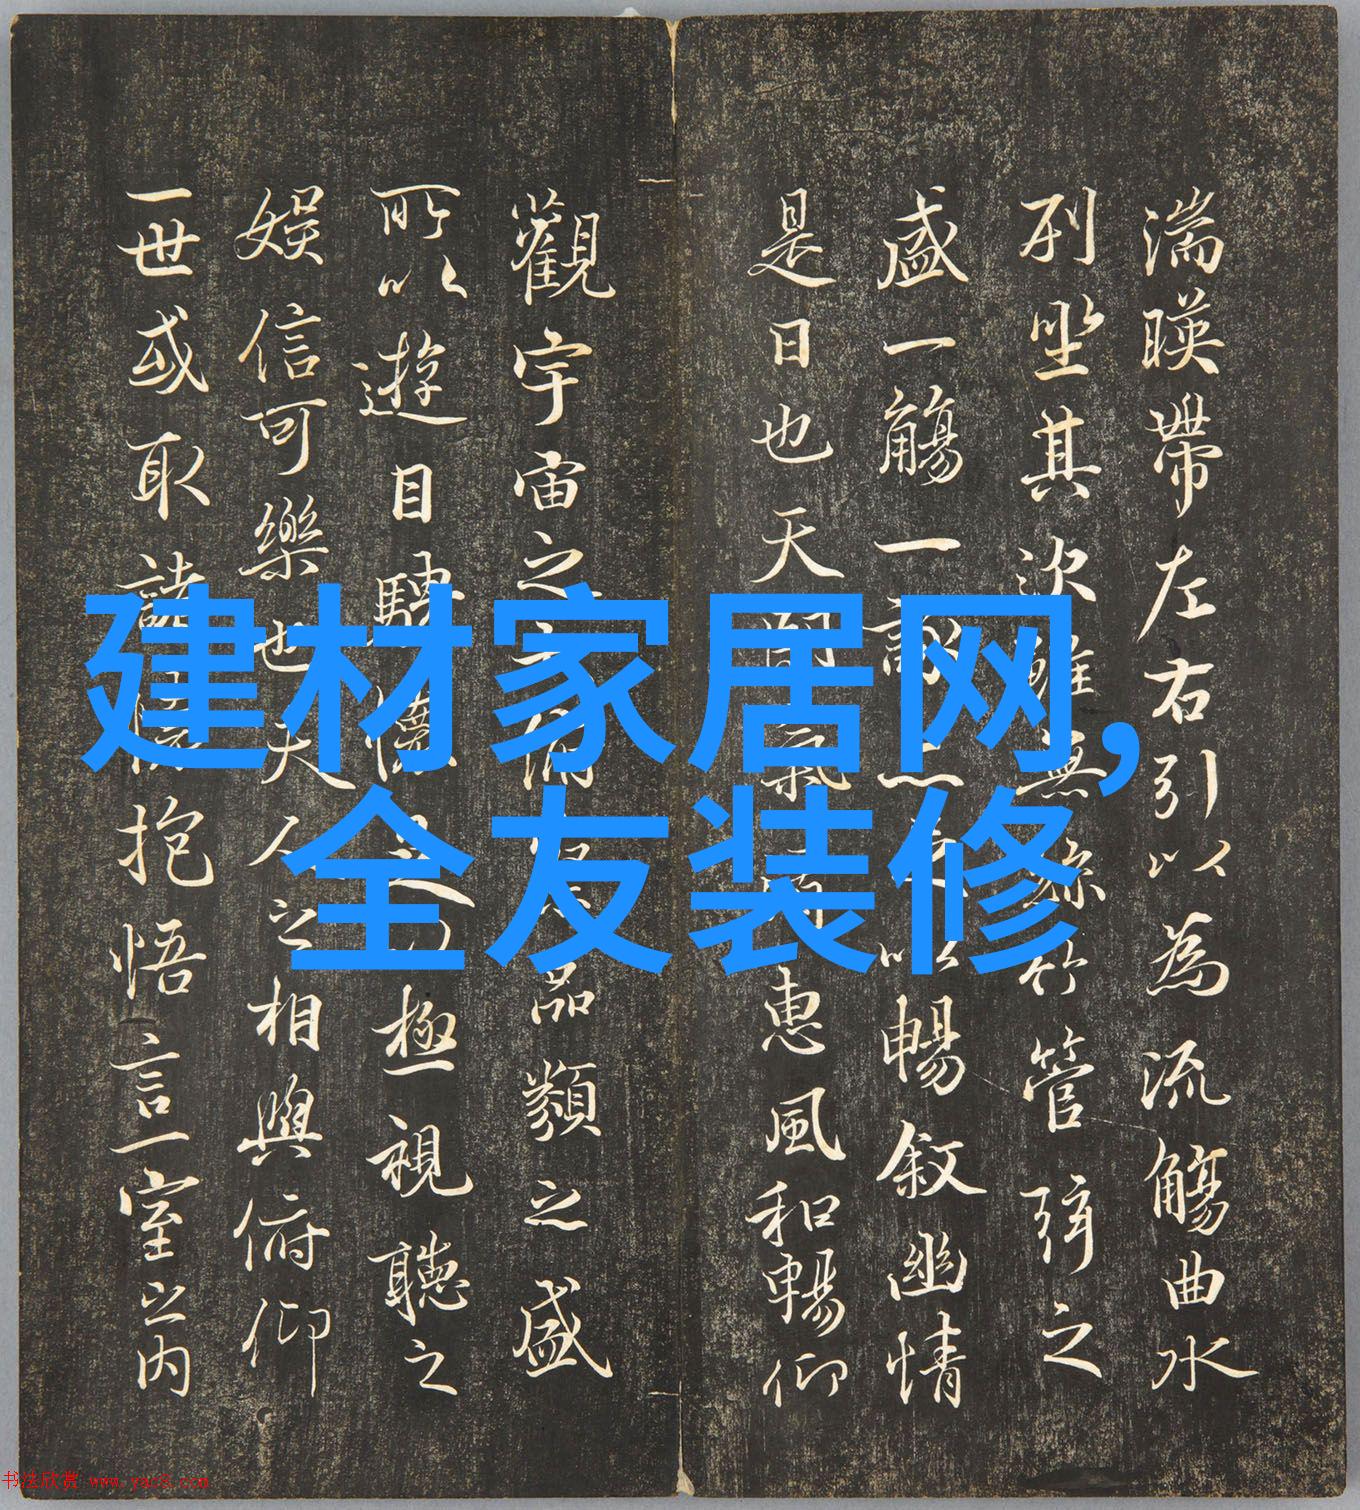 湍暎帶左右引以為流觴曲水
列坐其次雖無絲竹管弦之
盛一觴一詠亦足以暢敘幽情
是日也天朗氣清惠風和暢仰
觀宇宙之大俯察品類之盛
所以遊目騁懷足以極視聽之
娛信可樂也夫人之相與俯仰
一世或取諸懷抱悟言一室之内
建材家居网,
全友装修
书法欣赏 www.yac8.com